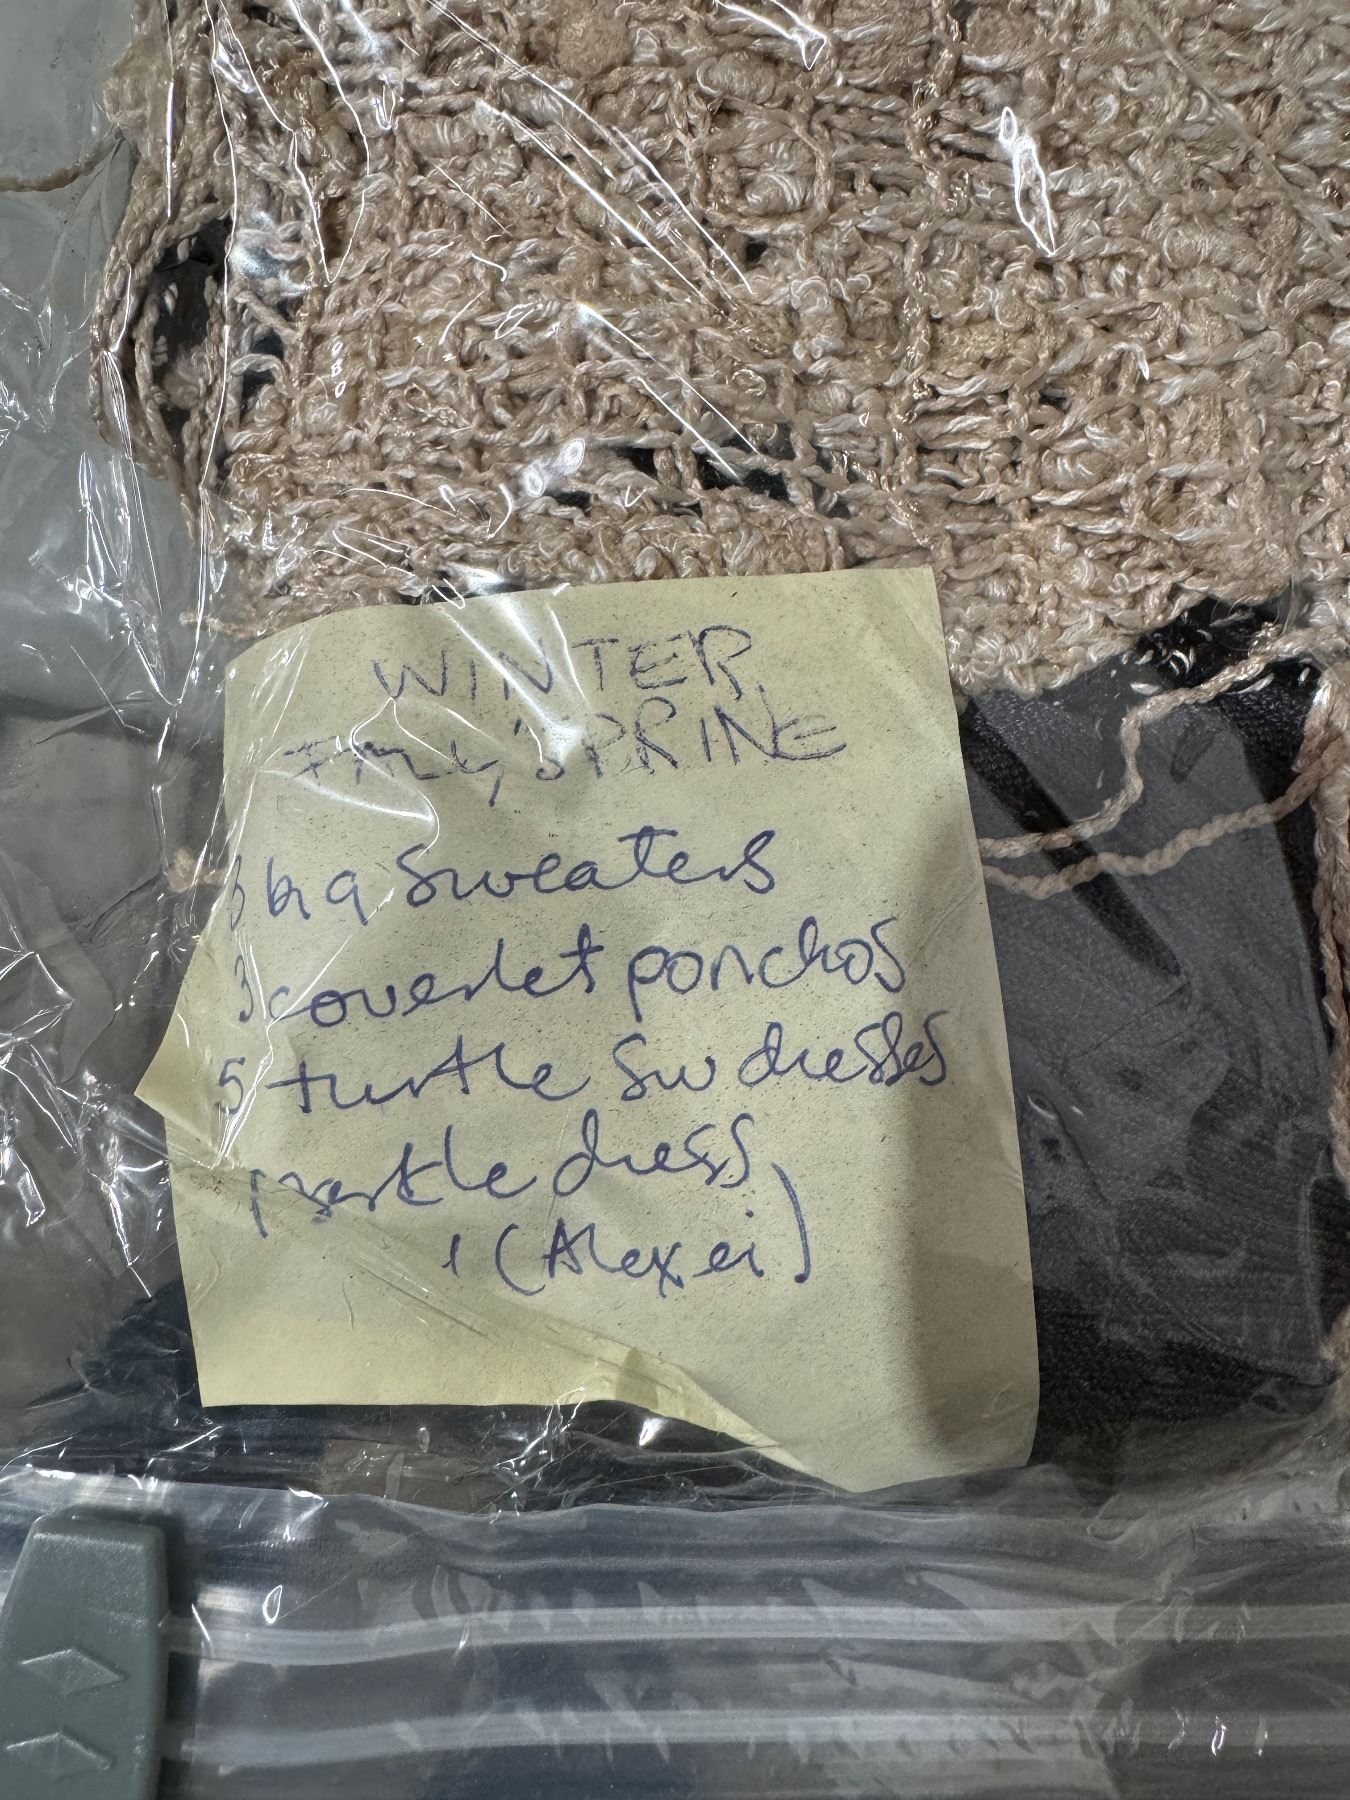 WINTER,
FALL, SPRING
3 big sweaters
3 coverlet ponchos
5 turtle sw dresses
dress,
1 (Alexei)